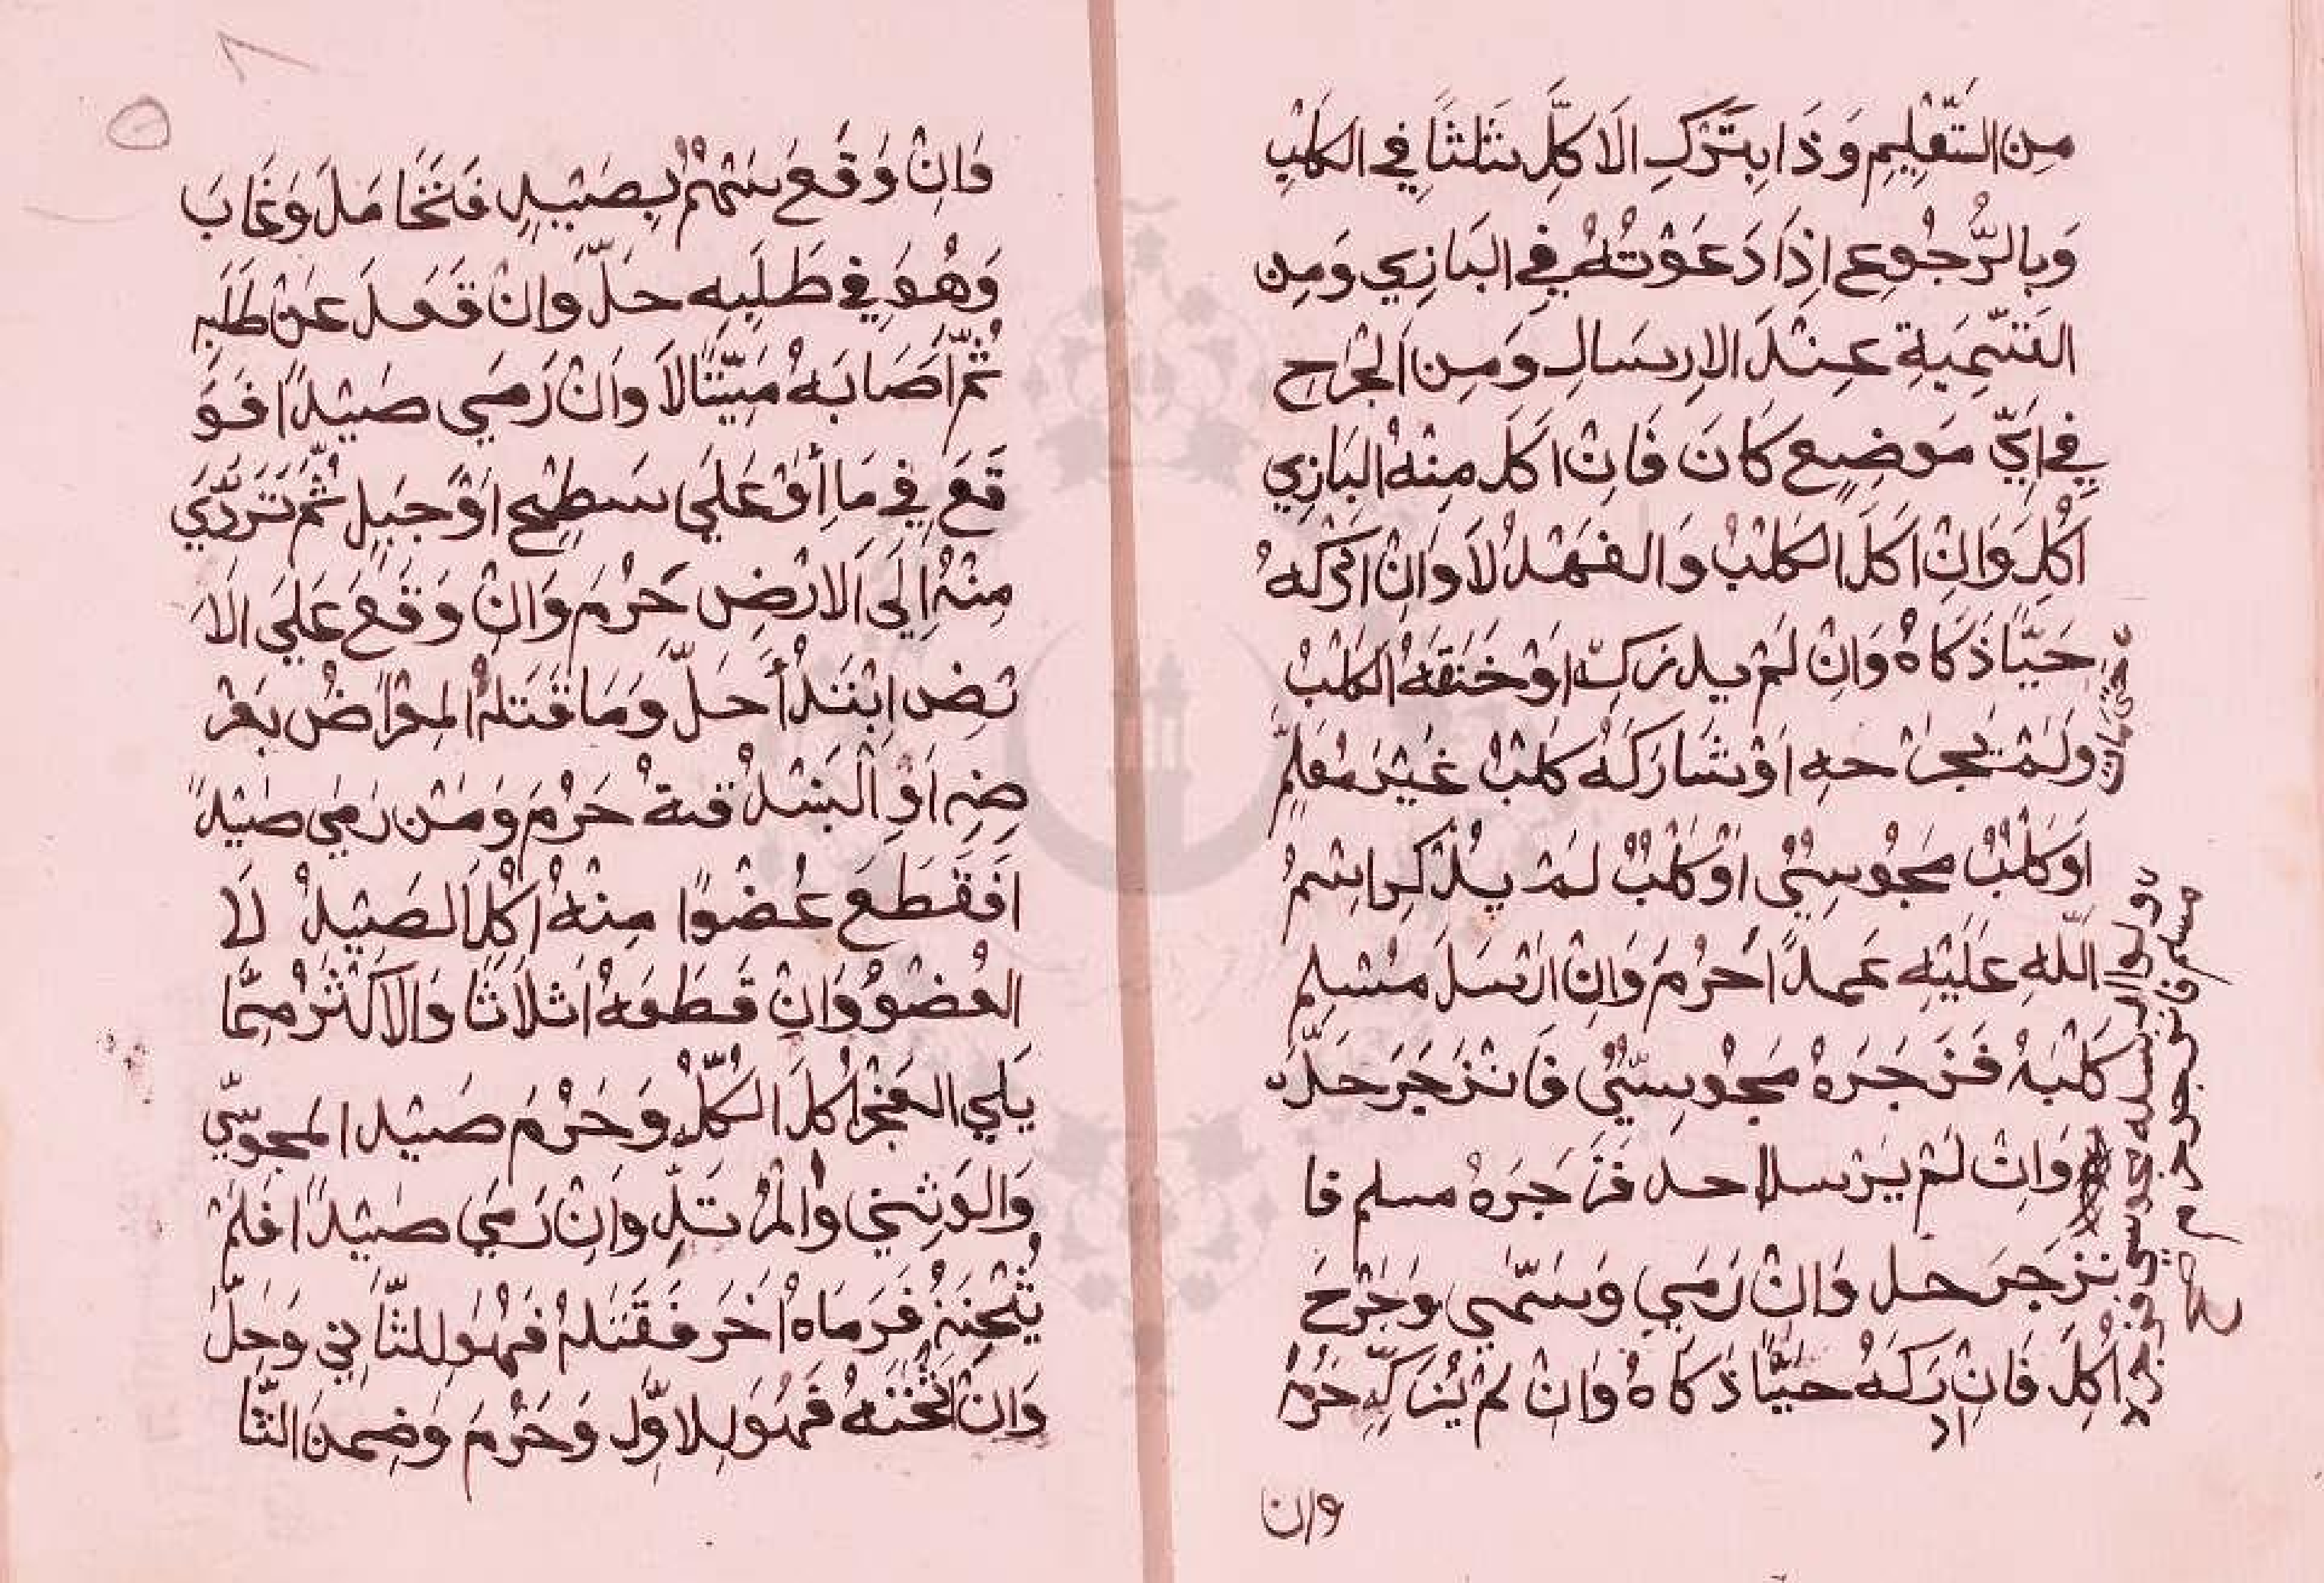 مِنَ التَّعْلِيمِ وَذَا بِتَرْكِ الَاكِلِّ ثَلثًا فِي الكَلْبِ
وَبِالرُّجُوعِ اِذَا دَعَوْتُهُ فِي البَازِي وَمِن
التَّسْمِيَةِ عِنْدَ الاِرسَالِ وَمِنَ الْجَرْحِ
فِي اَيِّ مَوضِعٍ كَانَ فَانْ اَكَلَ مِنْهُ البَازِي
اُكِلَ وَانْ اَكَلَ الكَلْبُ وَالفَهْدُ لَا وَانْ ادْرَكَهُ
حَيًّا ذَكَاهُ وَانْ لَمْ يدزكِّ اَوْ خَنَقَهُ الكَلْبُ
وَلَمْ يجرحهِ اَوْ شَارَكَهُ كَلْبٌ غَيْرَ مُعَلَّمٍ
اَوْ كَلْبُ مَجُوسِيٍّ اَوْ كَلْبٌ لَمْ يذْكَرِ اسْمُ
اللهِ عَلَيْهِ عَمدًا حَرُمَ وَانْ اَرْسَلَ مُسْلِم
كَلْبَهُ فَزَجَرَهُ مَجُوسِيٌّ فَانْزَجَرَ حَلَّ
وَانْ لَمْ يَرْسلا حد فَزَجَرَهُ مسلم فا
نزَجَرَ حل وَانْ رَمَي وَسَمّي وَجَرَحَ
اُكِلَ فَانْ ادرَكَهُ حَيًّا ذَكَاهُ وَانْ لمْ يُزَكِّهِ حَرُمُ
حتى مات
ولو ارسله مجوسي فزجره
مسلم فانزجر حرم
صح
وان
وَانْ وَقَعَ سَهْمٌ بِصَيْدٍ فَتَحَامَلَ وَغَابَ
وَهُوَ فِي طَلَبِهِ حَلَّ وَانْ قَعَدَ عَنْ طَلَبِهِ
ثُمَّ اَصَابَهُ مَيِّتًا لَا وَانْ رَمَي صَيْدًا فَوَ
قَعَ فِي مَاأ أوْ عَلَي سَطِحٍ اَوْ جَبَلٍ ثُمَّ تَرَدَّي
مِنْهُ اِلَي الَارْضِ حَرُمَ وَانْ وَقَعَ عَلَي الَا
رْضِ ابْتَدأ حَلَّ وَمَا قَتَلَهُ المِعْرَاضُ بِعَرْ
ضِهِ اَوْ الْبَنْدُقة حَرُمَ وَمَنْ رَمَي صَيْدً
ا فَقَطَعَ عُضْوًا مِنْهُ اُكِلَ الصَيْدُ لَا
العُضْوُ وَانْ قَطَعَهُ اَثلَاثًا وَالَاكْثَرُ مِمَّا
يَلِي العَجْزَ اُكِلَ الكُلُّ وَحَرُمَ صَيْد المَجُوسِّي
وَالوَثِنِي وَالمُرْتَدِّ وَانْ رَمَي صَيْدًا فَلَمْ
يُثْخِنْهُ فَرَمَاهُ اَخَر فَقَتَلَهُ فَهُوَ لِلثَّانِي وَحَلَّ
وَانْ اثْخَنَهُ فَهُوَ لِلاوَّلِ وَحَرُمَ وَضِمنَ الثَّا
٨